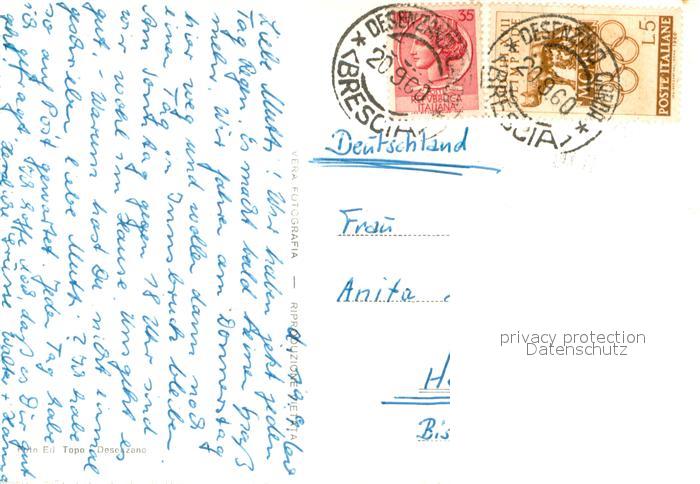 Liebe Mutti! Wir haben jetzt jeden
Tag Regen. Es macht bald keinen Spaß
mehr. Wir fahren am Donnerstag
hier weg und wollen dann noch
einen Tag in Innsbruck bleiben
vom Sonntag gegen 18 Uhr sind
wir wohl im Hause. Uns geht es
gut. Warum hast Du nicht einmal
geschrieben, liebe Mutti?
so auf Post gewartet. Jeden Tag habe
ich gefragt. Ich hoffe, daß es Dir gut
Herzliche Grüße Walter +
VERA FOTOGRAFIA — RIPRODUZIONE VIETATA
Foto Ed. Topo - Desenzano
* DESENZANO
20.9.60
<BRESCIA> *
35
REPUBBLICA
ITALIANA
* DESENZANO
20.9.60
<BRESCIA> *
L.5
POSTE ITALIANE
Deutschland
Frau
Anita
H
Bis
privacy protection
Datenschutz